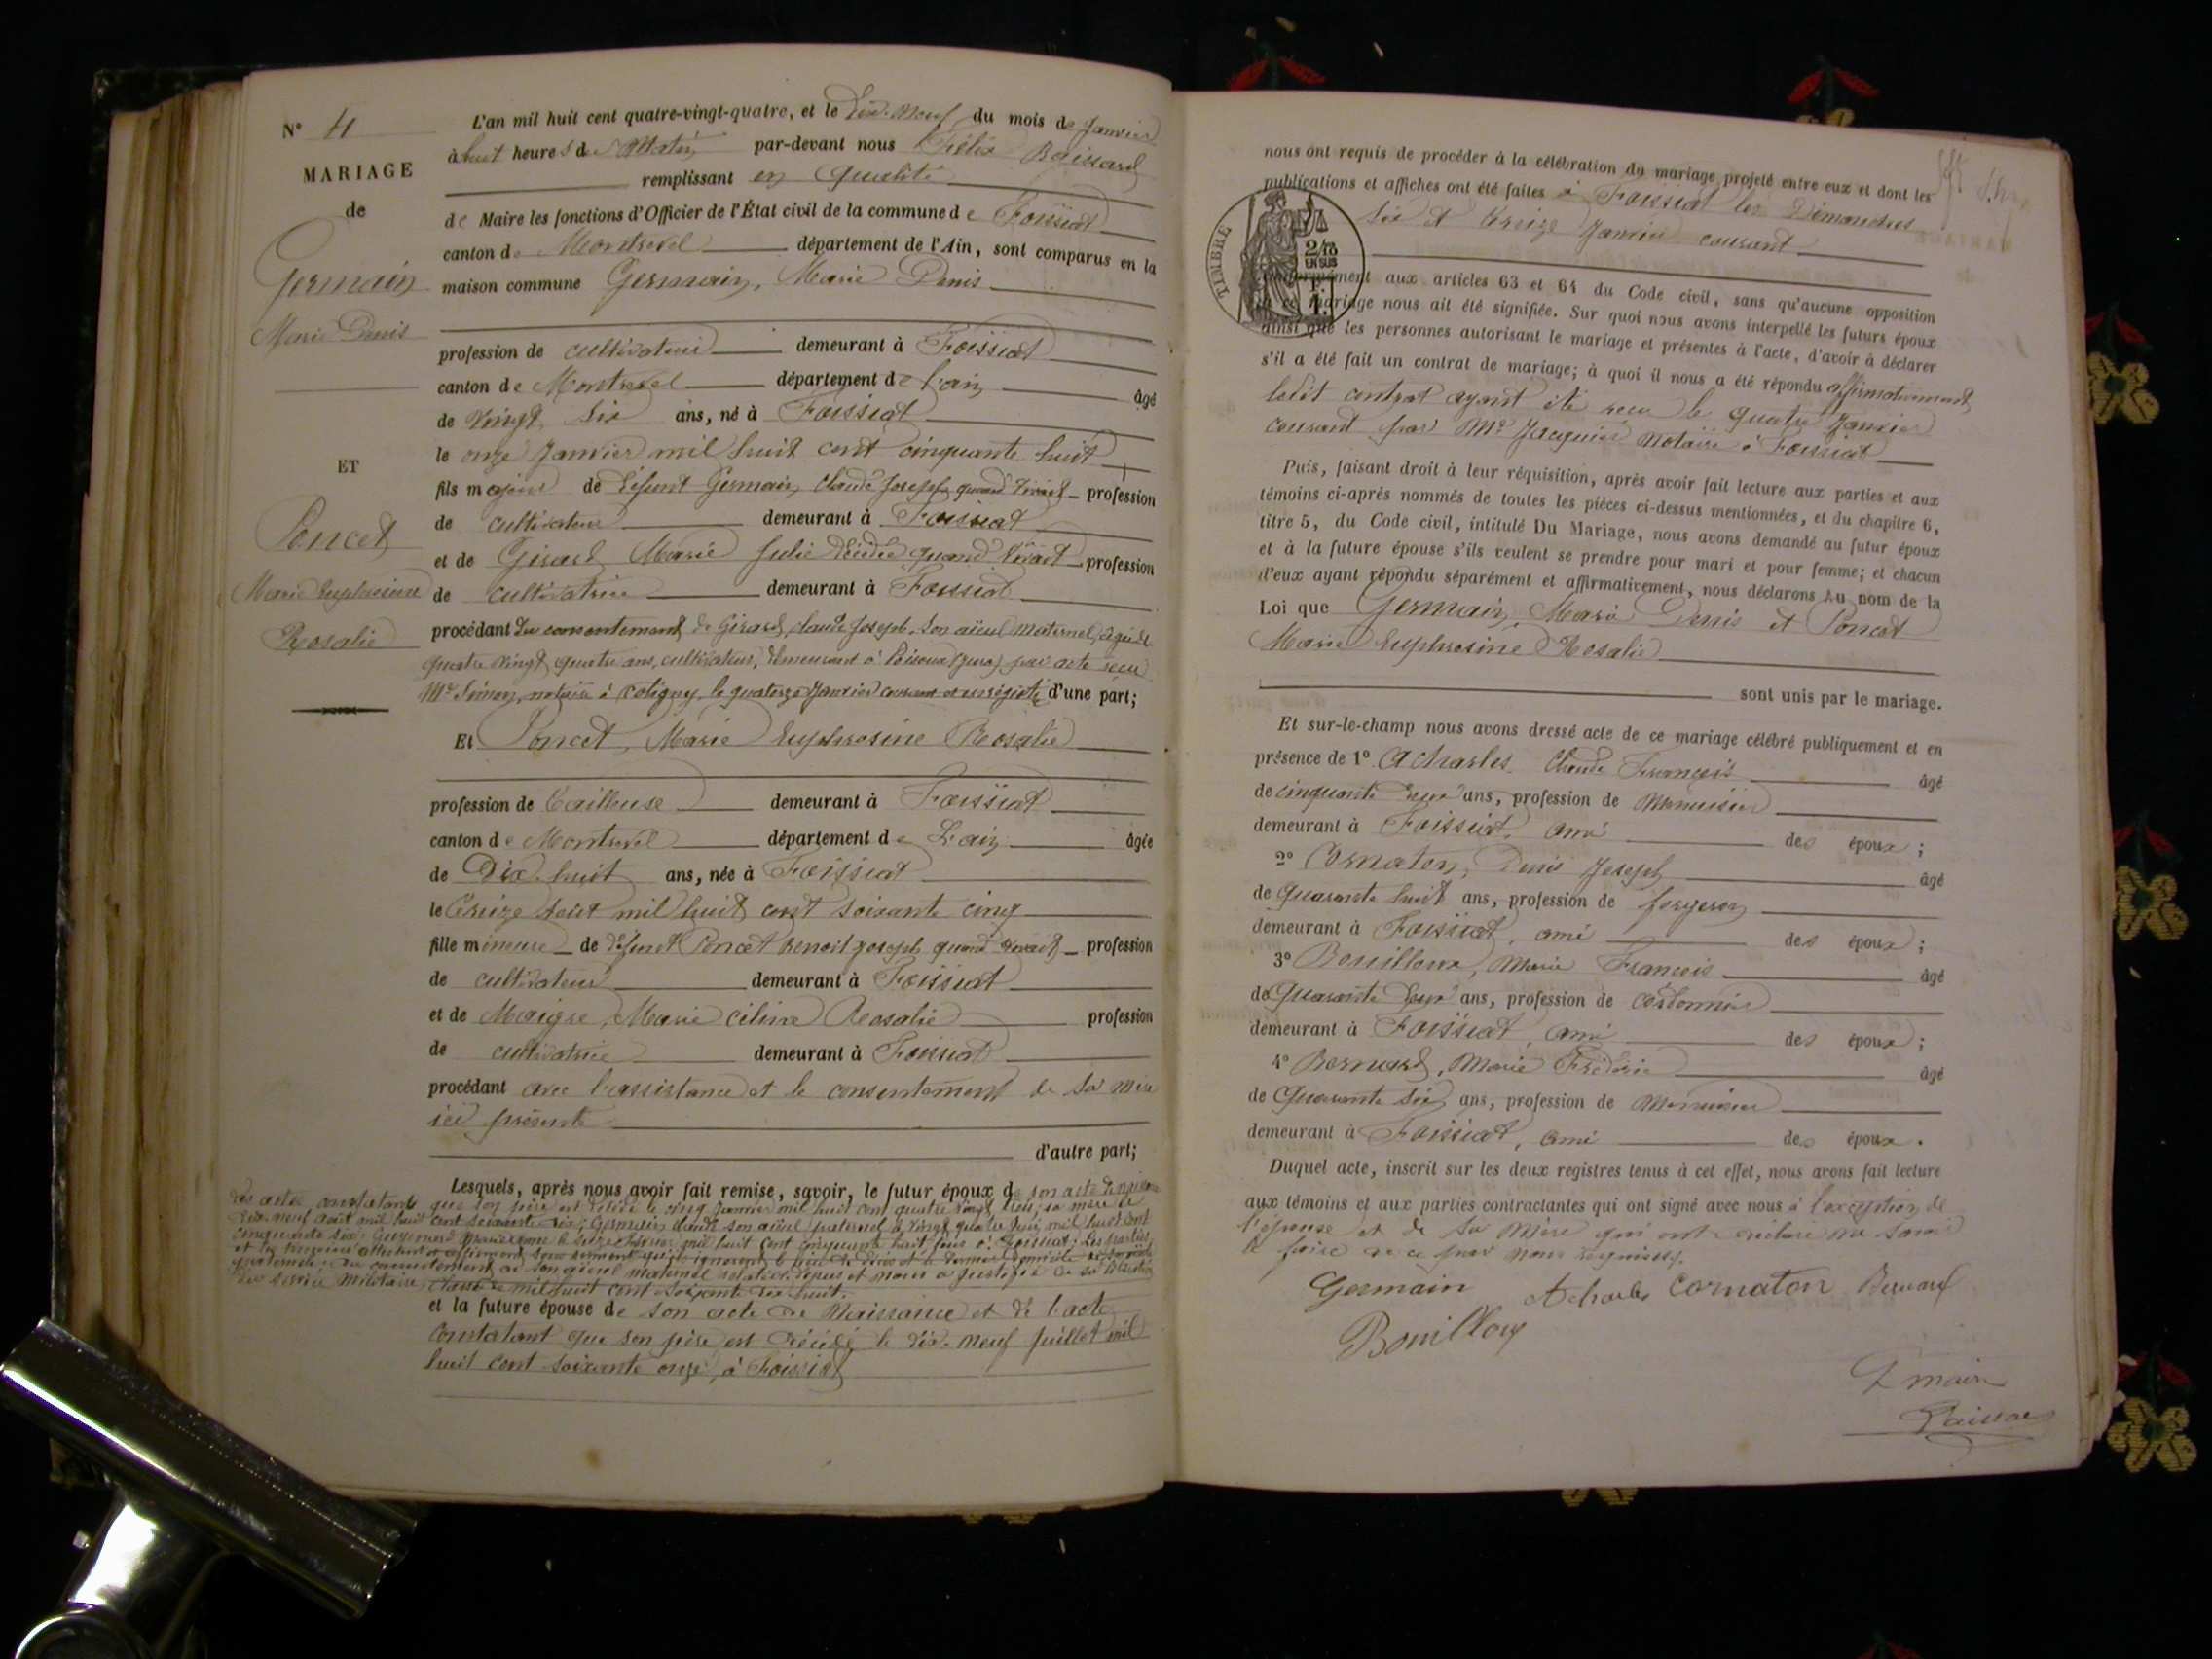 N° 4
MARIAGE
de
Germain
Marie Denis
ET
Poncet
Marie Euphrosine
Rosalie
L'an mil huit cent quatre-vingt-quatre, et le Dix-Neuf du mois de Janvier
à huit heures du Matin par-devant nous Félix Boissard
remplissant en qualité
de Maire les fonctions d'Officier de l'État civil de la commune de Foissiat
canton de Montrevel département de l'Ain, sont comparus en la
maison commune Germain, Marie Denis
profession de cultivateur demeurant à Foissiat
canton de Montrevel département de l'ain âgé
de vingt six ans, né à Foissiat
le onze Janvier mil huit cent cinquante huit
fils majeur de défunt Germain, Claude Joseph quand vivait profession
de cultivateur demeurant à Foissiat
et de Girard Marie Julie décédée quand vivait profession
de cultivatrice demeurant à Foissiat
procédant du consentement de Girard, claude Joseph, son aïeul maternel, âgé de
quatre vingt quatre ans, cultivateur, demeurant à (Jura) par acte reçu
Me notaire à Coligny le quatorze Janvier courant et enregistré d'une part;
Et Poncet, Marie Euphrosine Rosalie
profession de Tailleuse demeurant à Foissiat
canton de Montrevel département de L'ain âgée
de Dix-huit ans, née à Foissiat
le Treize Août mil huit cent soixante cinq
fille mineure de défunt Poncet Benoit Joseph quand vivait profession
de cultivateur demeurant à Foissiat
et de Maigre, Marie céline Rosalie profession
de cultivatrice demeurant à Foissiat
procédant avec l'assistance et le consentement de sa mère
ici présente
d'autre part;
Lesquels, après nous avoir fait remise, savoir, le futur époux de son acte de naissance
des actes constatant que son père est décédé le cinq Janvier mil huit cent quatre vingt deux, sa mère le
dix-neuf août mil huit cent soixante six; Germain claude son aïeul paternel le vingt quatre Juin mil huit cent
cinquante six; Marie le seize Février mil huit cent cinquante huit tous à Foissiat; Les parties
et les témoins attestent et affirment sous serment qu'ils ignorent le lieu de décès et le dernier domicile de
maternelle; du consentement de son aïeul maternel relaté ci-dessus et nous a justifié de sa libération
du service militaire, classe de mil huit cent soixante dix huit.
et la future épouse de son acte de Naissance et de l'acte
constatant que son père est décédé le dix-neuf Juillet mil
huit cent soixante onze, à Foissiat
nous ont requis de procéder à la célébration du mariage projeté entre eux et dont les
publications et affiches ont été faites à Foissiat les Dimanches
six et treize Janvier courant
TIMBRE
2/10
EN SUS
conformément aux articles 63 et 64 du Code civil, sans qu'aucune opposition
à ce mariage nous ait été signifiée. Sur quoi nous avons interpellé les futurs époux
ainsi que les personnes autorisant le mariage et présentes à l'acte, d'avoir à déclarer
s'il a été fait un contrat de mariage; à quoi il nous a été répondu affirmativement
ledit contrat ayant été reçu le quatre Janvier
courant par Me Jacquier notaire à Foissiat
Puis, faisant droit à leur réquisition, après avoir fait lecture aux parties et aux
témoins ci-après nommés de toutes les pièces ci-dessus mentionnées, et du chapitre 6,
titre 5, du Code civil, intitulé Du Mariage, nous avons demandé au futur époux
et à la future épouse s'ils veulent se prendre pour mari et pour femme; et chacun
d'eux ayant répondu séparément et affirmativement, nous déclarons au nom de la
Loi que Germain, Marie Denis et Poncet
Marie Euphrosine Rosalie
sont unis par le mariage.
Et sur-le-champ nous avons dressé acte de ce mariage célébré publiquement et en
présence de 1° Acharles Claude François âgé
de cinquante deux ans, profession de Menuisier
demeurant à Foissiat, ami des époux;
2° Cornaton, Denis Joseph âgé
de quarante huit ans, profession de forgeron
demeurant à Foissiat, ami des époux;
3° Bouilloux, Marie François âgé
de Quarante deux ans, profession de cordonnier
demeurant à Foissiat, ami des époux;
4° Bernard, Marie Frédéric âgé
de Quarante six ans, profession de Menuisier
demeurant à Foissiat, ami des époux.
Duquel acte, inscrit sur les deux registres tenus à cet effet, nous avons fait lecture
aux témoins et aux parties contractantes qui ont signé avec nous à l'exception de
l'épouse et de sa mère qui ont déclaré ne savoir
le faire de ce par nous requises.
Germain Acharles Cornaton Bernard
Bouilloux